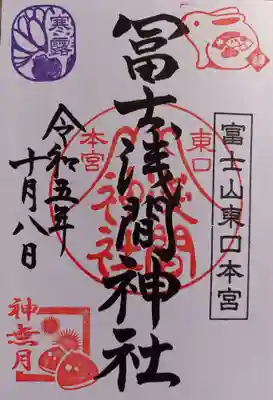 寒露
卯
冨士浅間神社
東口
本宮
浅間
神社
富士山東口本宮
令和五年
十月八日
神無月